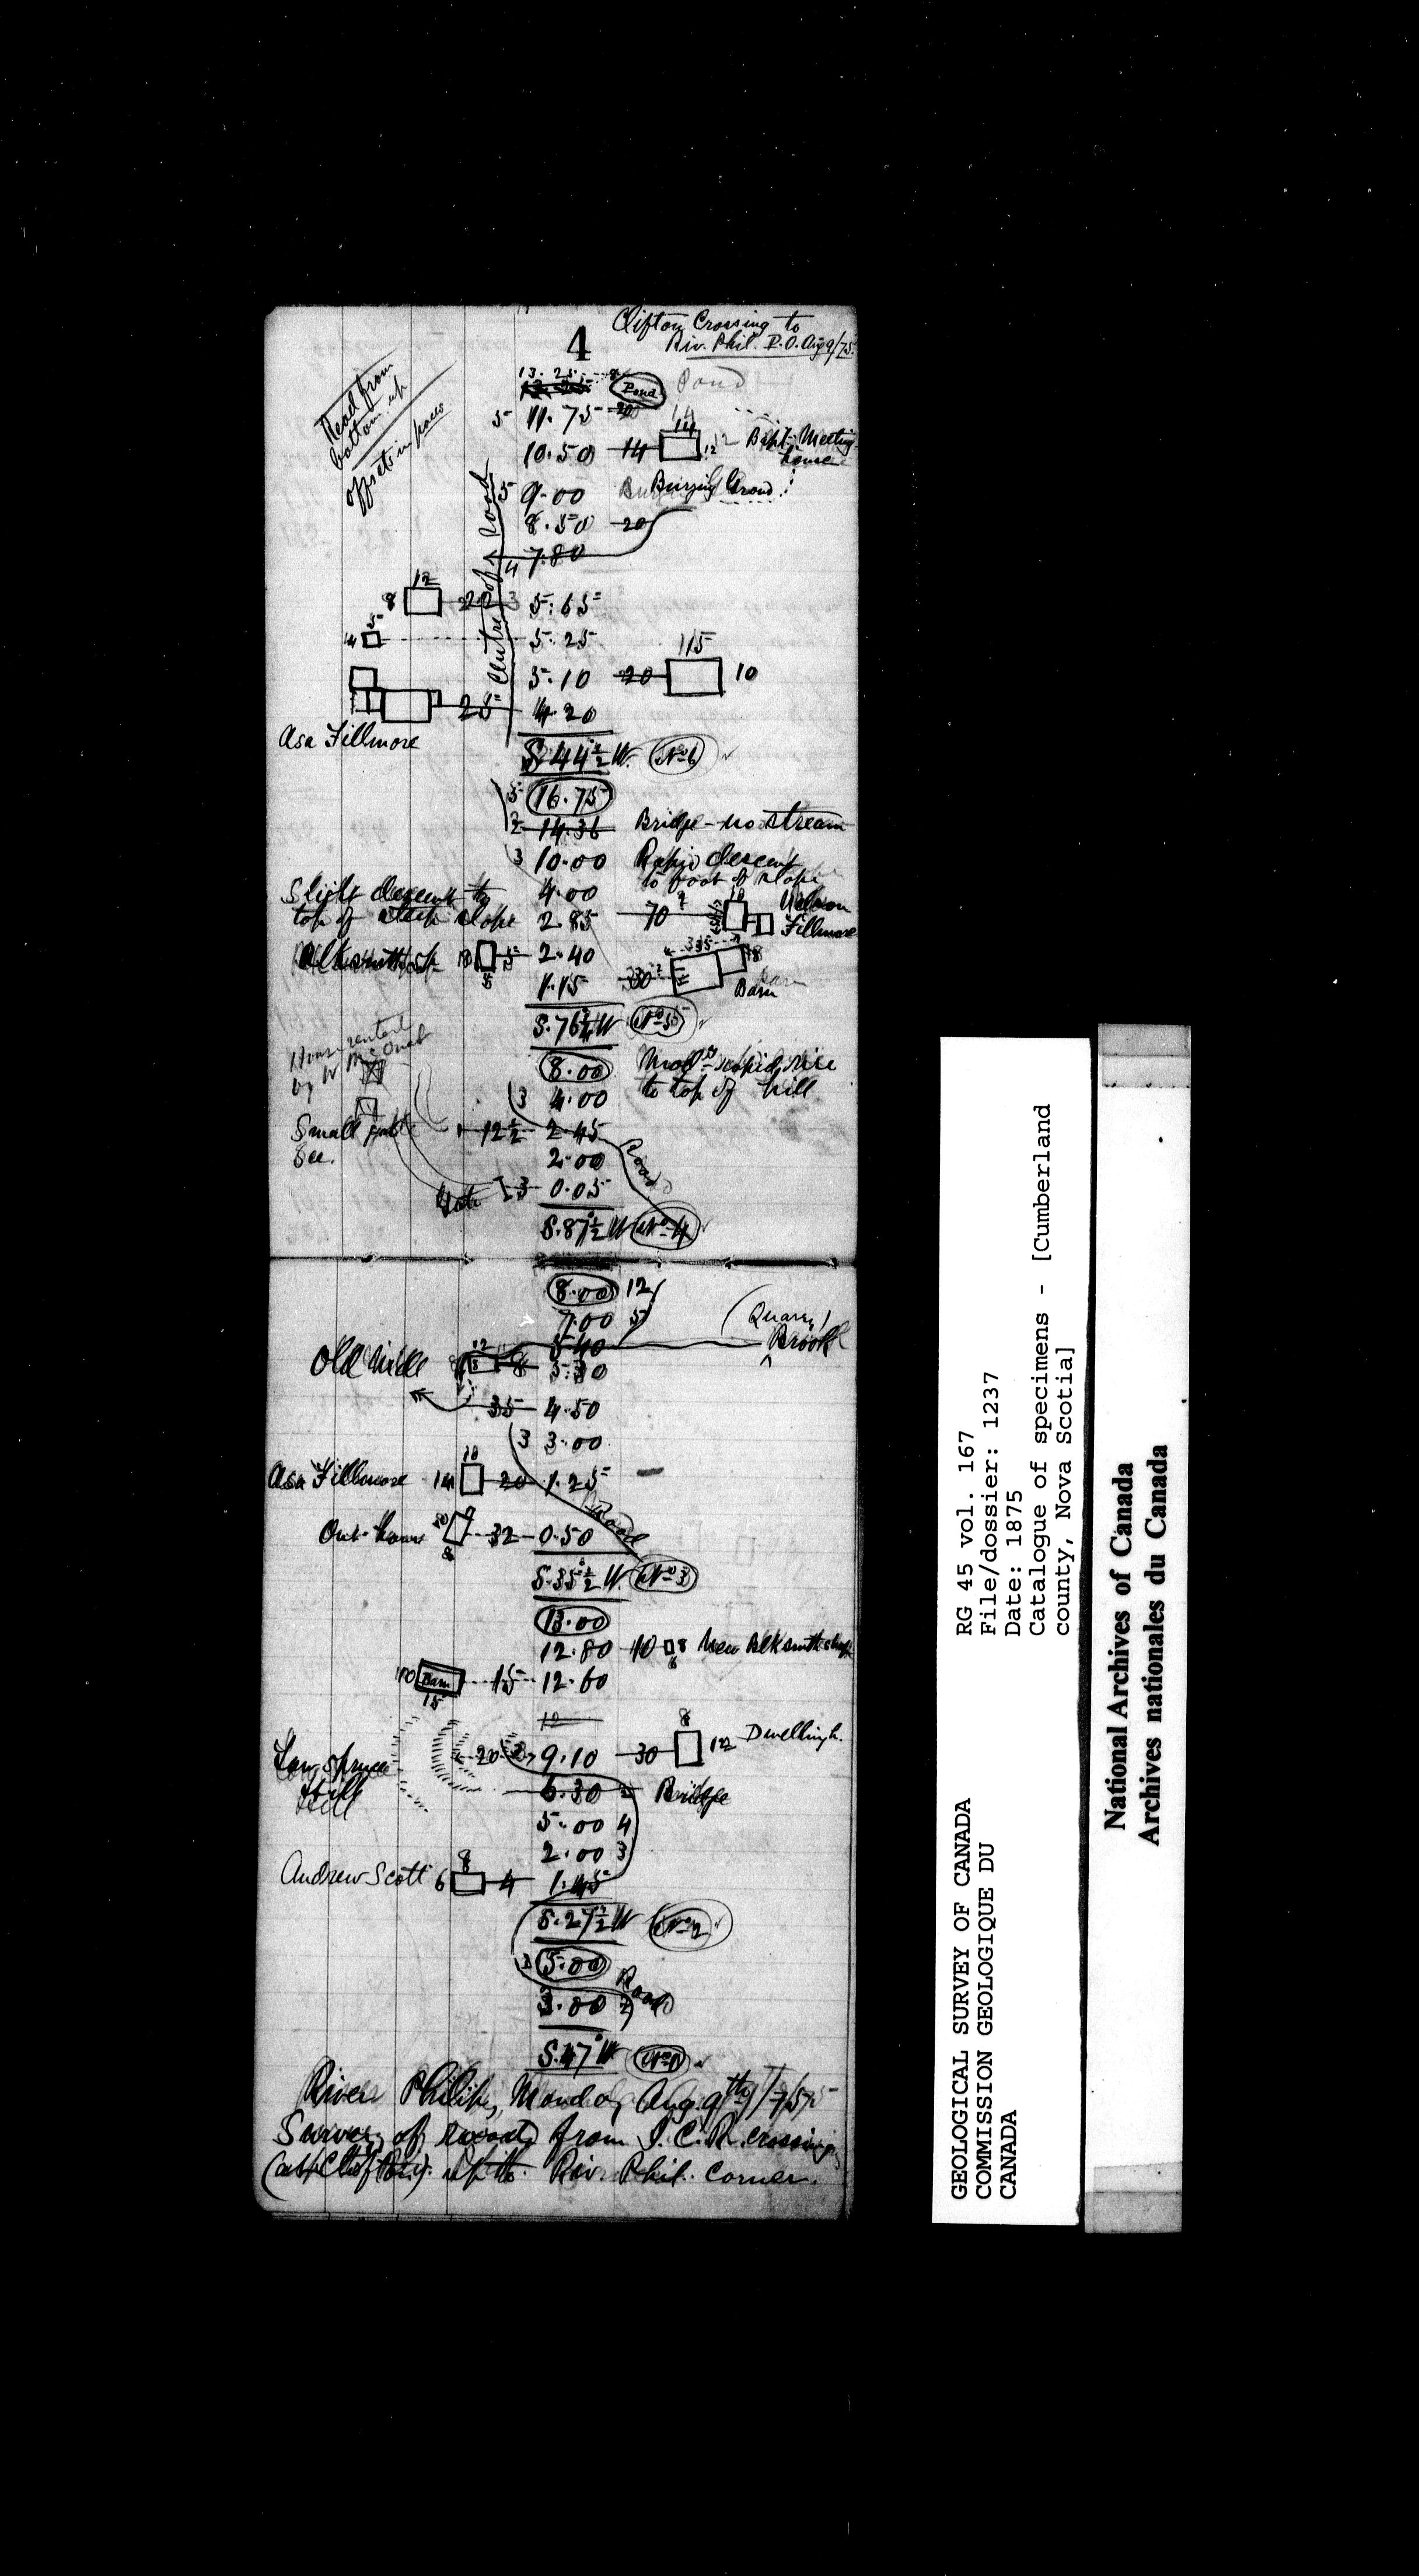 Clifton Crossing to
Riv. Phil. P.O. Aug 9/75
4
Read from
bottom up
offsets in paces
13.25 8 Pond Pond
5 11.75 20 14
10.50 14 14 12 Bapt. Meeting
house
5 9.00 Burying Ground
8.50 20
4 7.80
Centre of Road
12
8 22 3 5.65
5
4 5.25
115
5.10 20 10
25 4.20
Asa Fillmore
S 44½° W. No 6
5 16.75
2 14.36 Bridge - no stream
3 10.00 Rapid descent
to foot of slope
Slight descent to 4.00
top of steep slope 2.85 70 Fillmore
2.40
1.15 30 Barn
S. 76½° W No 5
House rented
by
8.00 rapid rise
to top of hill
3 4.00
Small 12½ 2.45
2.00 Road
Gate 13 0.05
S. 87½° W No 4
8.00 12
7.00 5
(Quarry)
5.40 Brook
Old Mill 12 8 5.30
35 4.50
3 3.00
18
Asa Fillmore 14 20 1.25
Road
Out-house 8 32 0.50
S. 35½° W. No 3
13.00
12.80 40 8 6 New Blksmith shop
10 Barn 15 12.60
15
12
8
20 9.10 30 12 Dwelling h.
Low spruce
Hill
Hill
6.30 Bridge
5.00 4
2.00 3
8
Andrew Scott 6 4 1.45
S. 27½° W No 2
5.00
Road
3.00 2
S. 47° W No 1
River Philip, Monday Aug. 9th/75
Survey of road from I.C.R. crossing
(at Clifton) up to Riv. Phil. Corner.
GEOLOGICAL SURVEY OF CANADA
COMMISSION GEOLOGIQUE DU
CANADA
RG 45 vol. 167
File/dossier: 1237
Date: 1875
Catalogue of specimens - [Cumberland
county, Nova Scotia]
National Archives of Canada
Archives nationales du Canada